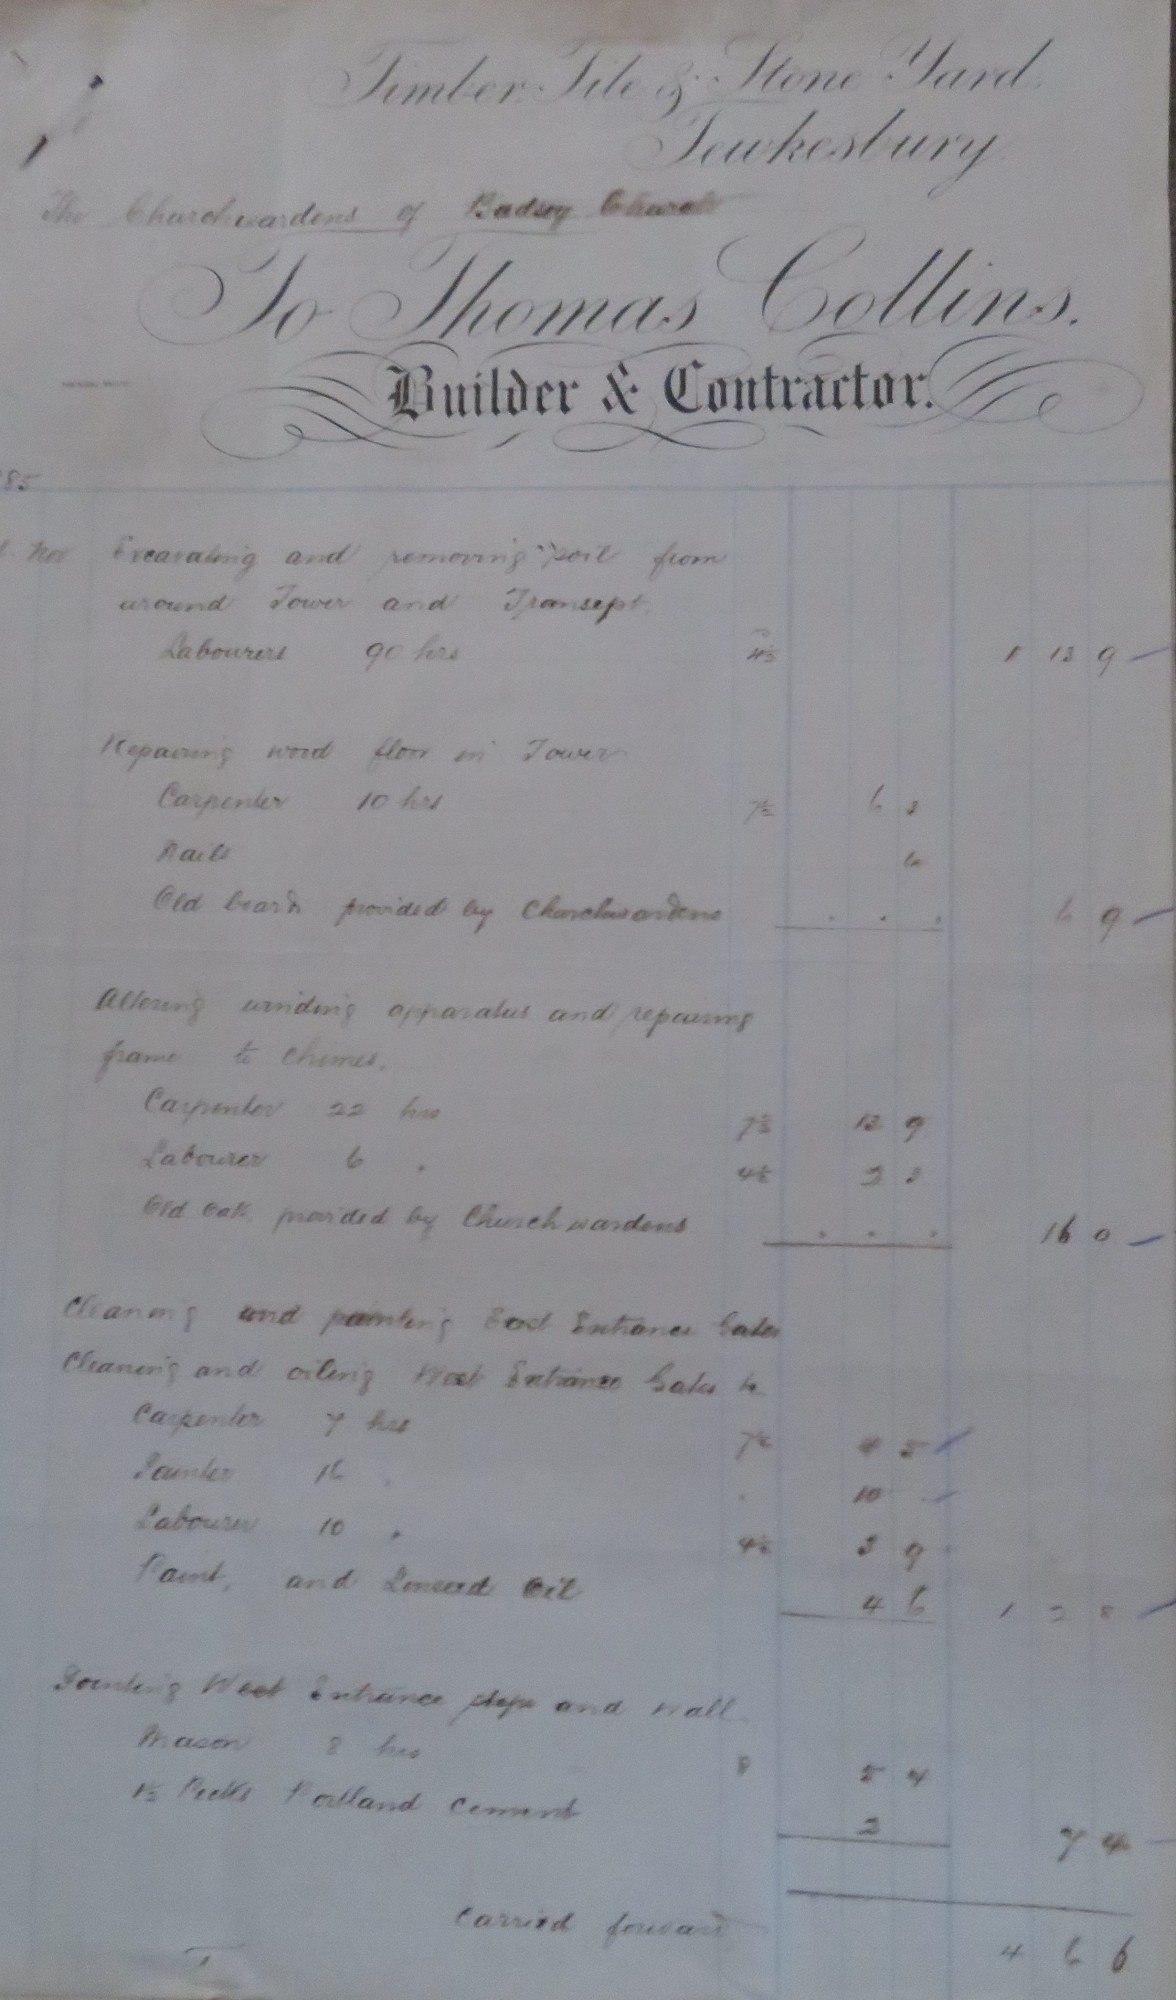 Timber Tile & Stone Yard.
Tewkesbury.
The Churchwardens of Badsey Church
To Thomas Collins.
Builder & Contractor.
85
Nov Excavating and removing soil from
around Tower and Transept.
Labourers 90 hrs 4½ 1 13 9
Repairing wood floor in Tower
Carpenter 10 hrs 7½ 6 3
Nails 6
Old boards provided by Churchwardens . . . 6 9
Altering winding apparatus and repairing
frame to Chimes.
Carpenter 22 hrs 7½ 13 9
Labourer 6 " 4½ 2 3
Old Oak provided by Churchwardens . . . 16 0
Cleaning and painting East Entrance Gates
Cleaning and oiling West Entrance Gates &c
Carpenter 7 hrs 7½ 4 5
Painter 16 " " 10 .
Labourer 10 " 4½ 3 9
Paint, and Linseed Oil 4 6 1 2 8
Pointing West Entrance steps and wall
Mason 8 hrs 8 5 4
1½ Pecks Portland Cement 2 7 4
Carried forward 4 6 6